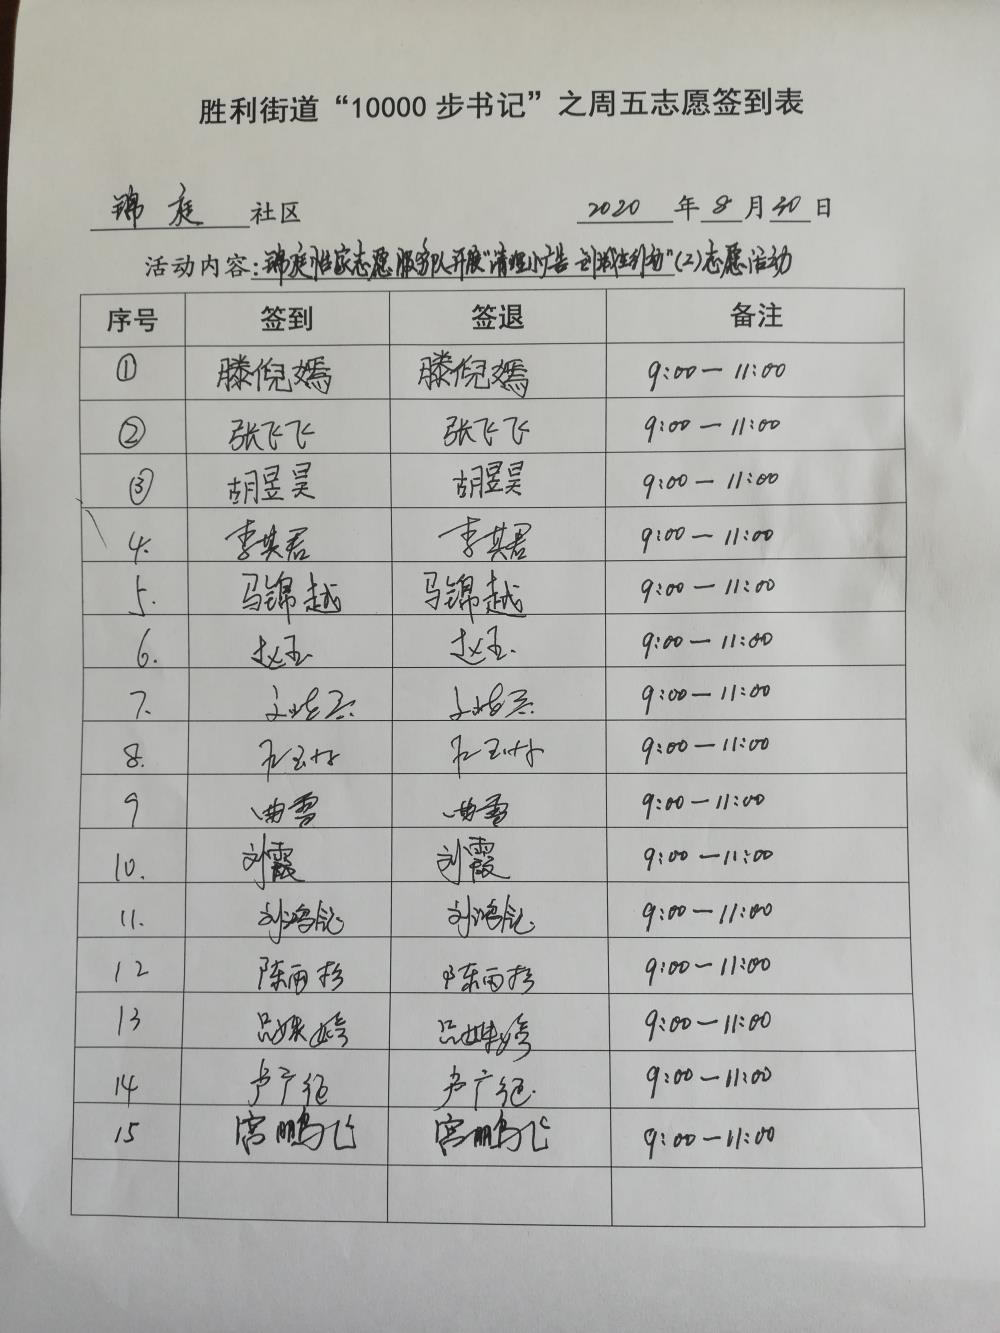 胜利街道“10000步书记”之周五志愿签到表
锦庭社区 2020年8月30日
活动内容:锦庭 家志愿服务队开展“清理小广告 ”(2)志愿活动
序号 签到 签退 备注
① 滕倪嫣 滕倪嫣 9:00—11:00
② 张飞飞 张飞飞 9:00—11:00
③ 胡昱昊 胡昱昊 9:00—11:00
4. 李其君 李其君 9:00—11:00
5. 马锦越 马锦越 9:00—11:00
6. 赵玉 赵玉 9:00—11:00
7. 9:00—11:00
8. 9:00—11:00
9 曲雪 曲雪 9:00—11:00
10. 刘霞 刘霞 9:00—11:00
11. 刘鸿 刘鸿 9:00—11:00
12 陈雨杉 陈雨杉 9:00—11:00
13 吕姝婷 吕姝婷 9:00—11:00
14 卢广 卢广 9:00—11:00
15 宫鹏飞 宫鹏飞 9:00—11:00